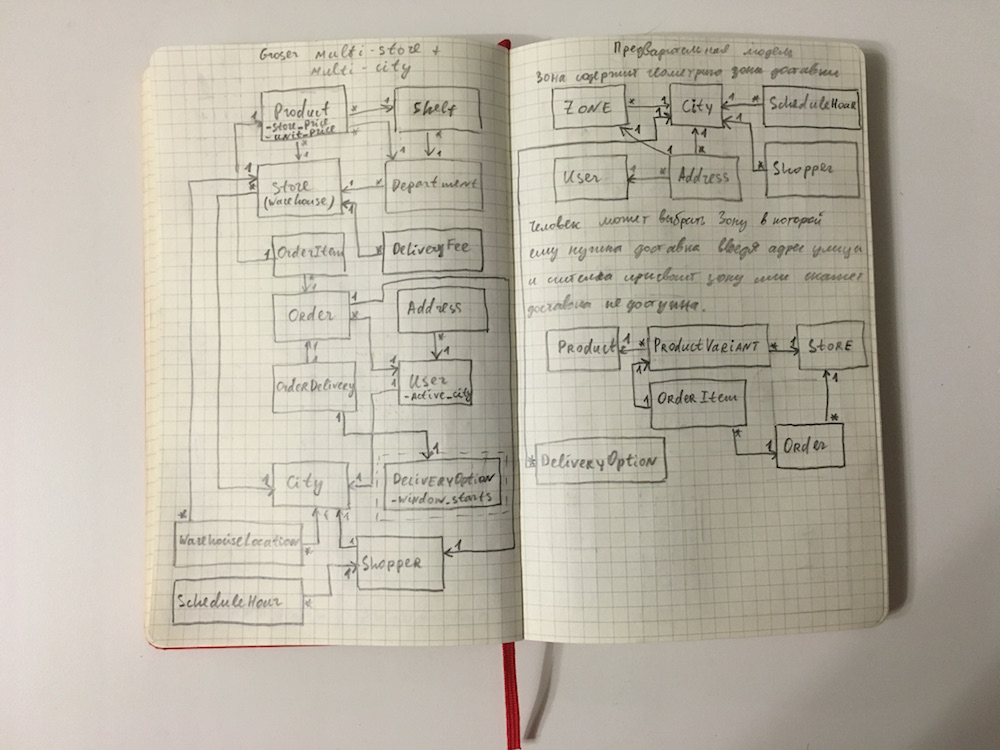 Groser multi-store +
multi-city
Product
-store_price
-unit_price
Shelf
Store
(warehouse)
Department
OrderItem
DeliveryFee
Order
Address
OrderDelivery
User
-active_city
City
DeliveryOption
-window_starts
WarehouseLocation
Shopper
ScheduleHour
Предварительная модель
Зона содержит геометрию зоны доставки
ZONE
City
ScheduleHour
User
Address
Shopper
Человек может выбрать Зону в которой
ему нужна доставка введя адрес улицы
и система присвоит зону или скажет
доставка не доступна.
Product
ProductVARIANT
STORE
OrderItem
Order
DeliveryOption